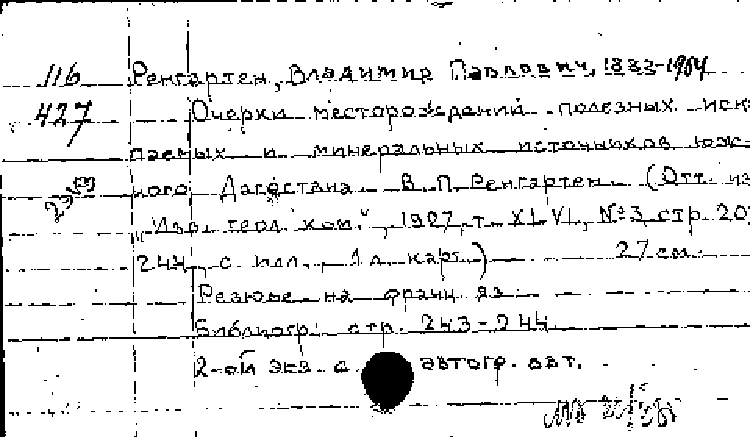 116 Ренгартен, Владимир Павлович, 1882-1964
427 Очерки месторождений полезных иско
паемых и минеральных источников юж-
ного Дагестана. В.П. Ренгартен. (Отт. из
„Изв. геол. ком.", 1927, т. XLVI, №3, стр. 20
244, с илл., 1 л. карт.) 27 см.
Резюме на франц. яз.
Библиогр.: стр. 243-244
2-ой экз. с автогр. авт.